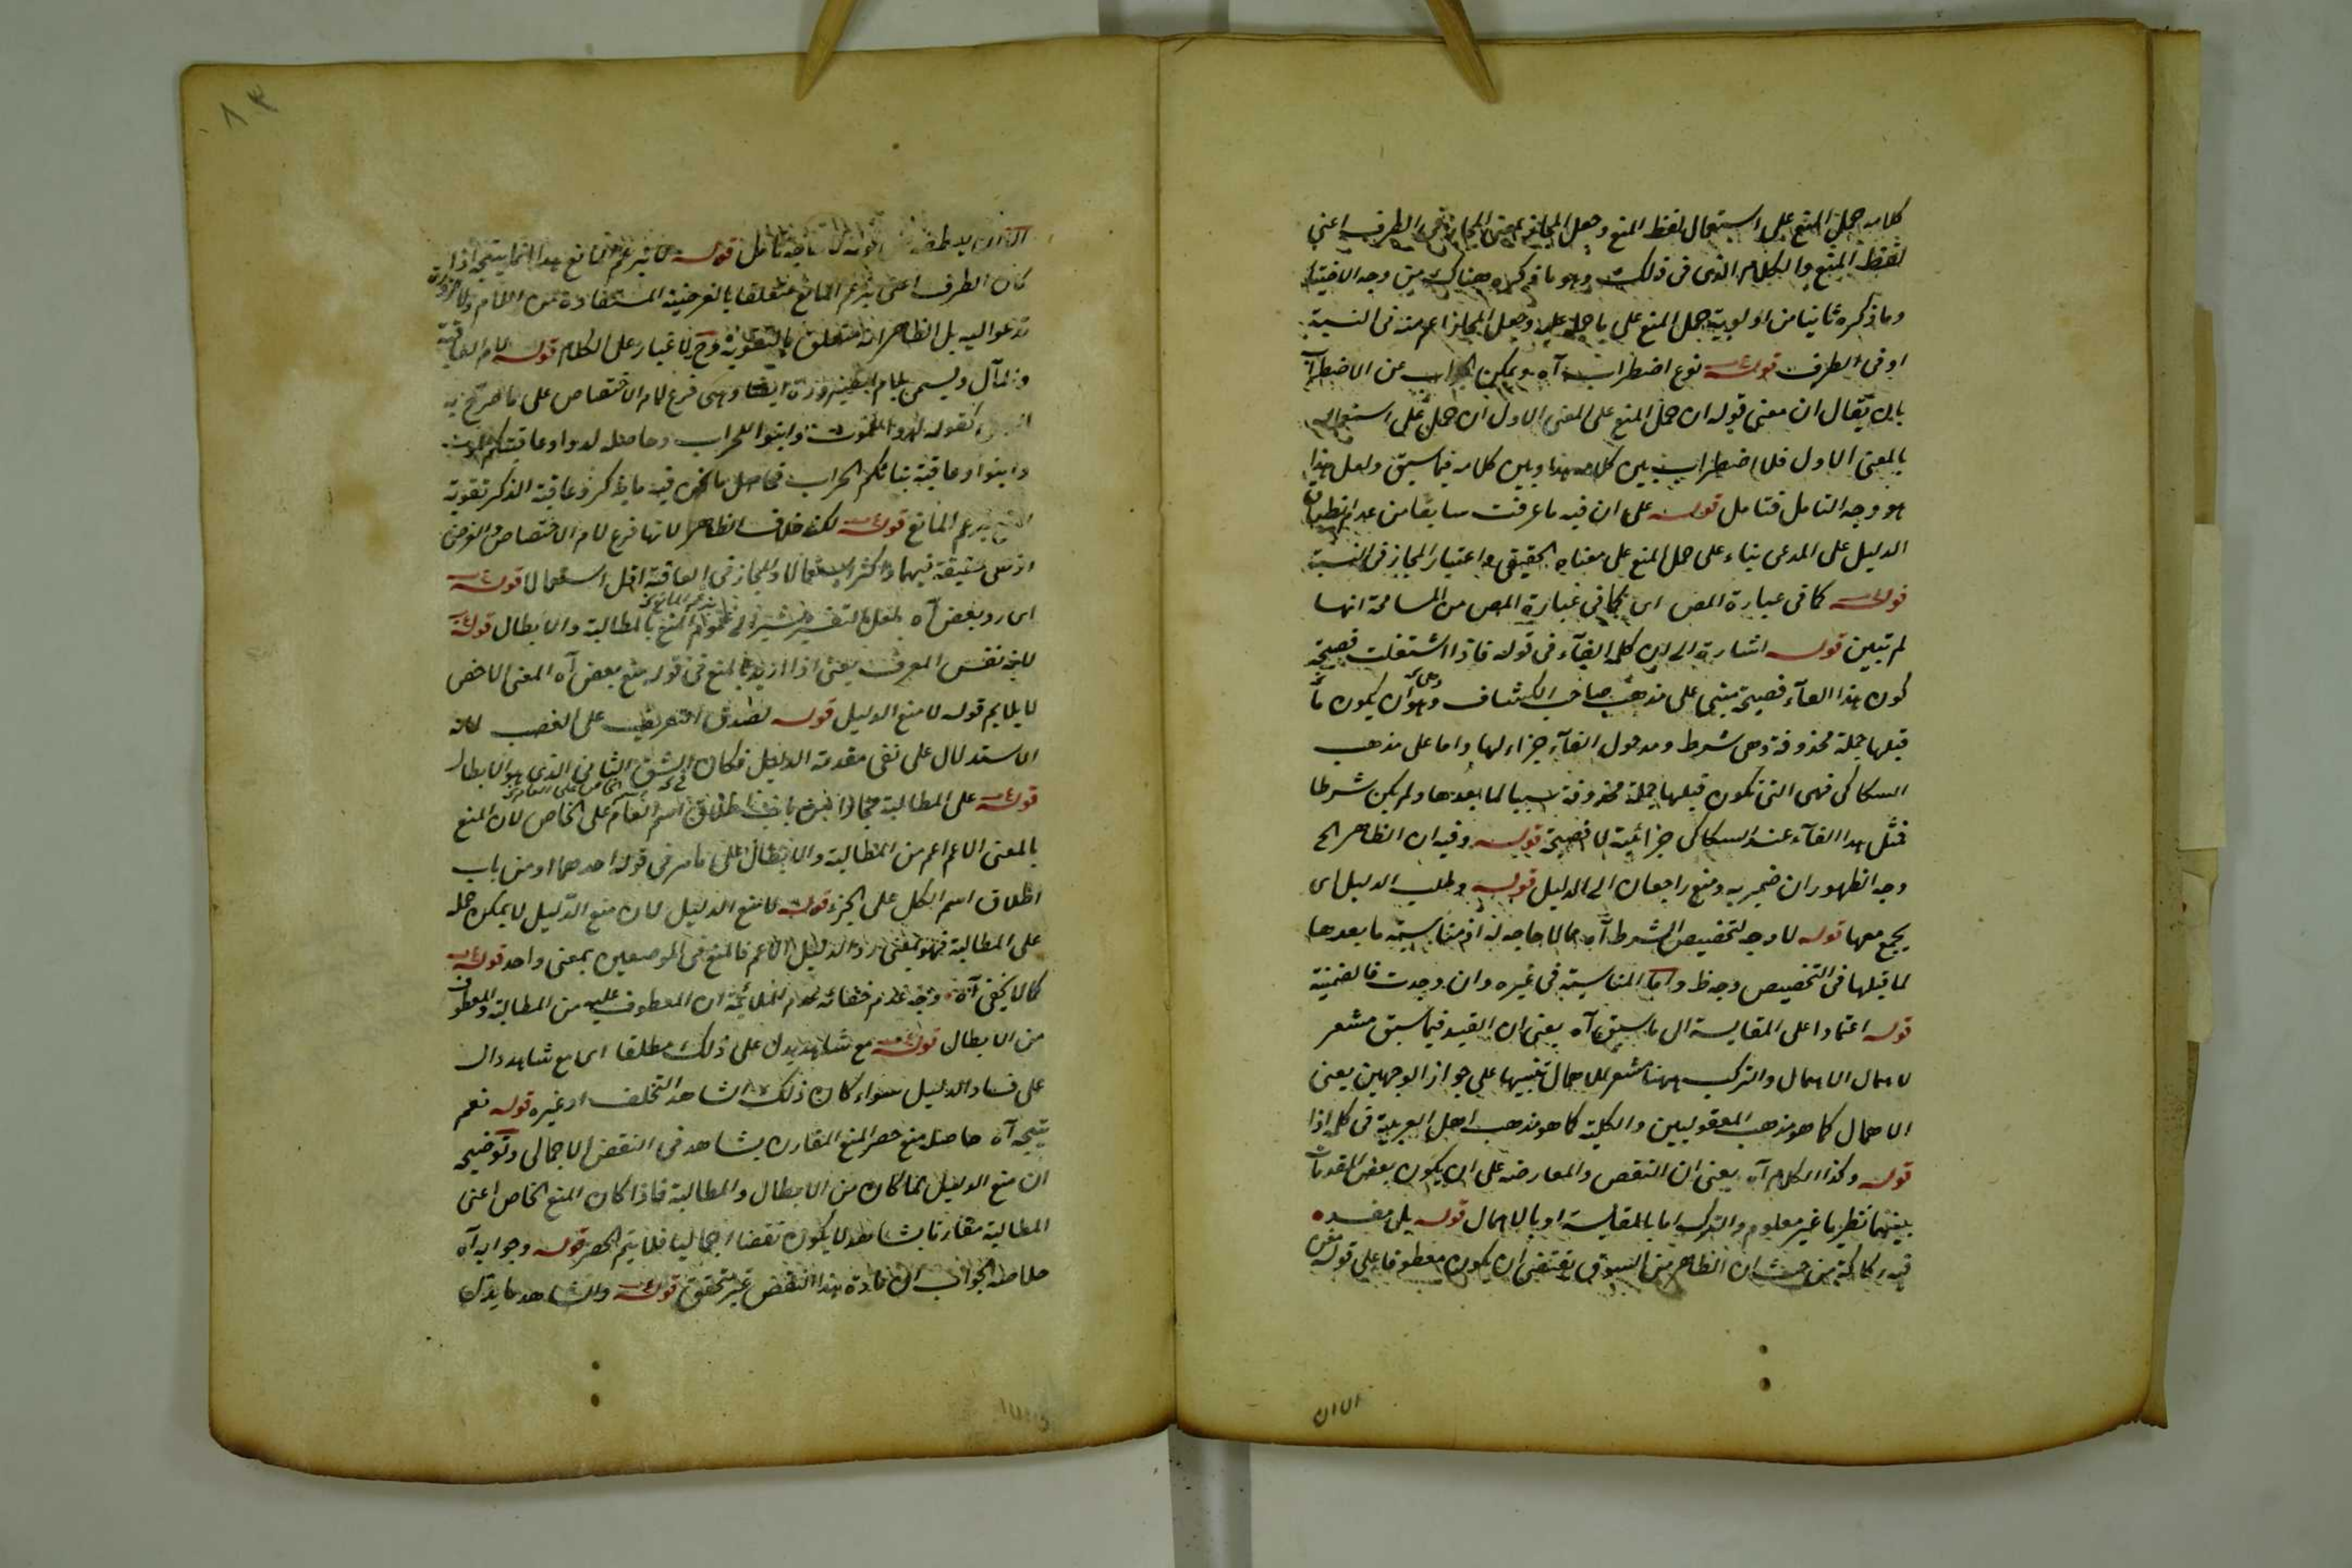 كلامه حمل المنع على استعمال لفظ المنع وجعل المجاز بمعنى المجاز في الطرف اعني
لفظ المنع والكلام الذى فى ذلك وهو ما ذكره هناك من وجه
وما ذكره ثانيا من اولوية حمل المنع على ما حمله عليه وجعل المجاز اعم منه فى النسبة
او فى الطرف قوله نوع اضطراب آه ويمكن الجواب عن الاضطراب
بان يقال ان معنى قوله ان حمل المنع على المعنى الاول ان حمل على استعماله
بالمعنى الاول فلا اضطراب بين كلامه هذا وبين كلامه فيما سبق ولعل هذا
هو وجه التامل فتامل قوله على ان فيه ما عرفت سابقا من عدم انطباق
الدليل على المدعى بناء على حمل المنع على معناه الحقيقى واعتبار المجاز فى النسبة
قوله كما فى عبارة المص اى كما فى عبارة المص من المسامحة انها
لم تبين قوله اشارة الى ان كلمة الفآء فى قوله فاذا اشتغلت فصيحة
كون هذا الفآء فصيحة مبنى على مذهب صاحب الكشاف وهو ان يكون ما
قبلها جملة محذوفة وهى شرط ومدخول الفآء جزاء لها واما على مذهب
السكاكى فهى التى تكون قبلها جملة محذوفة سببا لما بعدها ولم يكن شرطا
فمثل هذا الفآء عند السكاكى جزائية لا فصيحة قوله وفيه ان الظاهر الخ
وجه الظهور ان ضمير به ومنع راجعان الى الدليل قوله وطلب الدليل اى
يجمع معها قوله لا وجه لتخصيص الشرط آه مما لا حاجه له اذ مناسبة ما بعدها
لما قبلها فى التخصيص وجه ظ واما المناسبة فى غيره وان وجدت فالضمنية
قوله اعتمادا على المقايسة الى ما سبق آه يعنى ان القيد فيما سبق مشعر
لاهمال الاهمال والترك ههنا مشعر للاهمال تنبيها على جواز الوجهين يعنى
الاهمال كما هو مذهب المعقوليين والكلية كما هو مذهب اهل العربية فى كلمة اذا
قوله وكذا الكلام آه يعنى ان النقض والمعارضة على ان يكون بعض المقدمات
بينهما نظريا غير معلوم والترك اما بالمقايسة او بالاهمال قوله بل مفسده
فيه ركاكة من حيث ان الظاهر من السوق يقتضى ان يكون معطوفا على قوله
الاان
٨٣
قوله لا يزعم المانع هذا انما يتجه اذا
كان الطرف اعنى يزعم المانع متعلقا بالغرضية المستفادة من اللام ولا ضرورة
تدعو اليه بل الظاهر انه متعلق بالتقوية وح لا غبار على الكلام قوله لام العاقبة
والمآل ويسمى بلام الصيرورة ايضا وهى فرع لام الاختصاص على ما صرح به
كقوله لدوا للموت وابنوا للخراب وحاصله لدوا وعاقبتكم الموت
وابنوا وعاقبة بنائكم الخراب فحاصل ما نحن فيه ما يذكر وعاقبة الذكر تقوية
المنع بزعم المانع قوله لكنه خلاف الظاهر لانها فرع لام الاختصاص والغرض
اذ هى حقيقة فيهما واكثر استعمالا والمجاز فى العاقبة اقل استعمالا قوله
اى رد بعض آه لعل التفسير يشير الى عموم المنع بالمطالبة والابطال قوله
لانه نفس المعرف يعنى اذا اريد بالمنع فى قوله منع بعض آه المعنى الاخص
لا يلايم قوله لا منع الدليل قوله لصدق التعريف على الغصب لانه
الاستدلال على نفى مقدمة الدليل فكان الشق الثانى الذى هو الابطال
قوله على المطالبة مجازا من باب اطلاق اسم العام على الخاص لان المنع
بالمعنى الاعم اعم من المطالبة والابطال على ما مر فى قوله احدهما او من باب
اطلاق اسم الكل على الجزء قوله لا منع الدليل لان منع الدليل لا يمكن حمله
على المطالبة فهو بمعنى رد الدليل الاعم فالمنع فى الموضعين بمعنى واحد قوله
كما لا يخفى آه وجه عدم خفائه عدم الملائمة ان المعطوف عليه من المطالبة والمعطوف
من الابطال قوله مع شاهد يدل على ذلك مطلقا اى مع شاهد دال
على فساد الدليل سواء كان ذلك الشاهد التخلف او غيره قوله نعم
يتجه آه حاصله منع حصر المنع المقارن بشاهد فى النقض الاجمالى وتوضيحه
ان منع الدليل لما كان من الابطال والمطالبة فاذا كان المنع الخاص اعنى
المطالبة مقارنا بشاهد لا يكون نقضا اجماليا فلا يتم الحصر قوله وجوابه آه
خلاصة الجواب ان مادة هذا النقض غير متحقق قوله والشاهد ما يدل